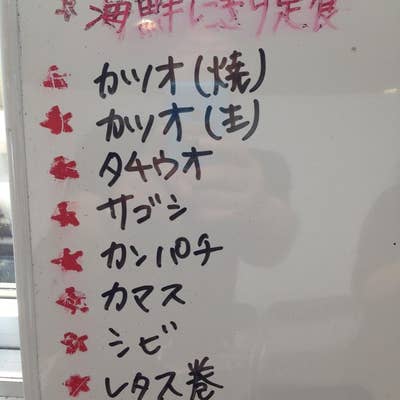 海鮮にぎり定食
カツオ(焼)
カツオ(生)
タチウオ
サゴシ
カンパチ
カマス
シビ
レタス巻